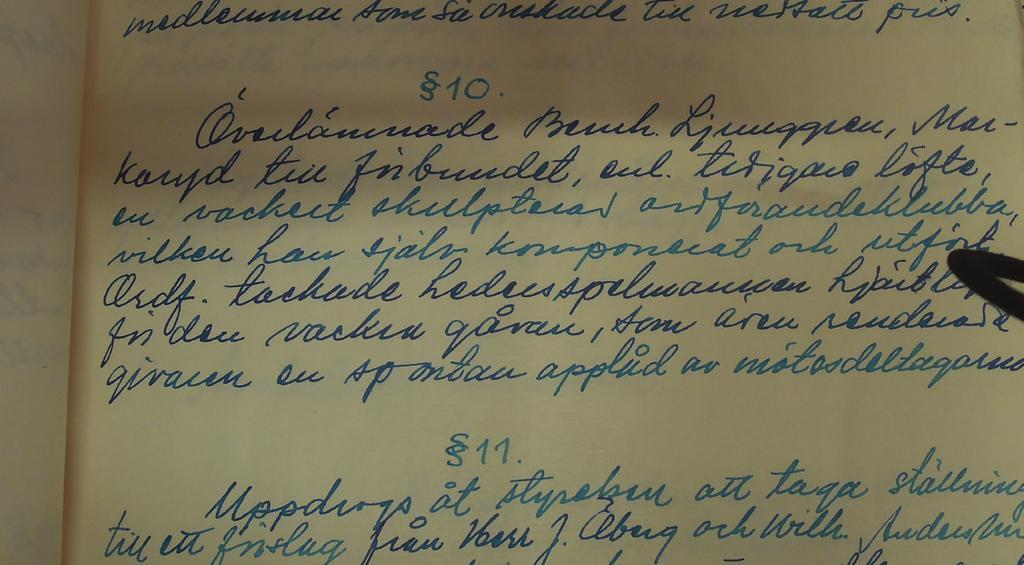 medlemmar som så önskade till nedsatt pris.
§10.
Överlämnade Bernh. Ljunggren, Mar-
karyd till förbundet, enl. tidigare löfte,
en vackert skulpterad ordförandeklubba,
vilken han själv komponerat och utfört.
Ordf. tackade hedersspelmannen hjärtl
för den vackra gåvan, som även renderade
givaren en spontan applåd av mötesdeltagarna
§11.
Uppdrogs åt styrelsen att taga ställning
till ett förslag från Herr J. Öberg och Wilh.